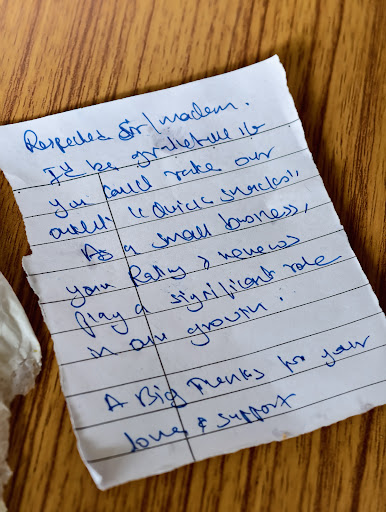 Respected Sir/madam.
I'd be gratefull if
you could rate our
outlet "Quick snacks",
As a small business,
your Rating & reviews
play a significant role
in our growth.
A Big Thanks for your
love & support